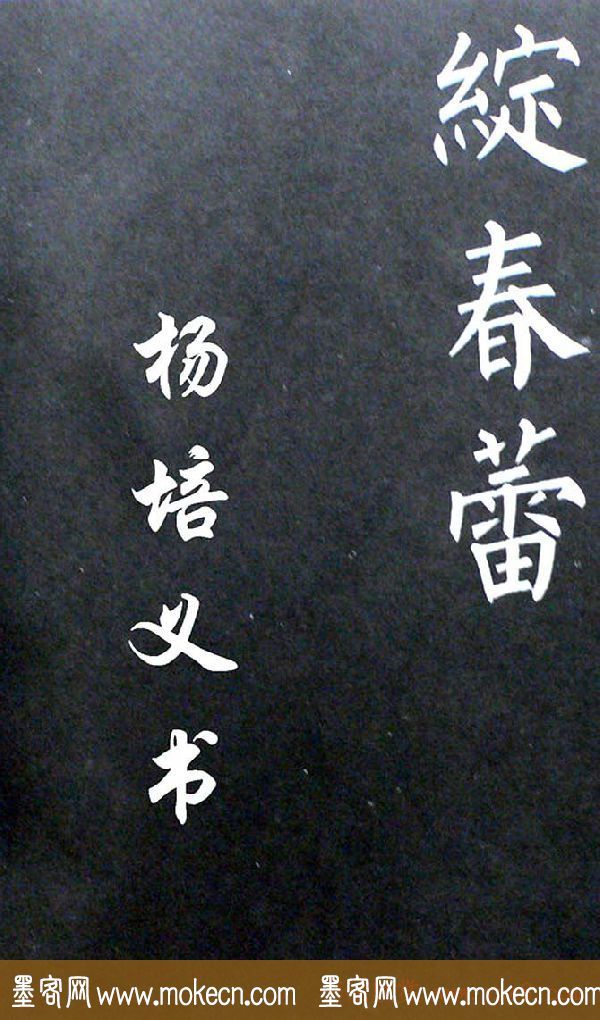 綻春蕾
杨培义书
墨客网 www.mokecn.com 墨客网 www.mokecn.com